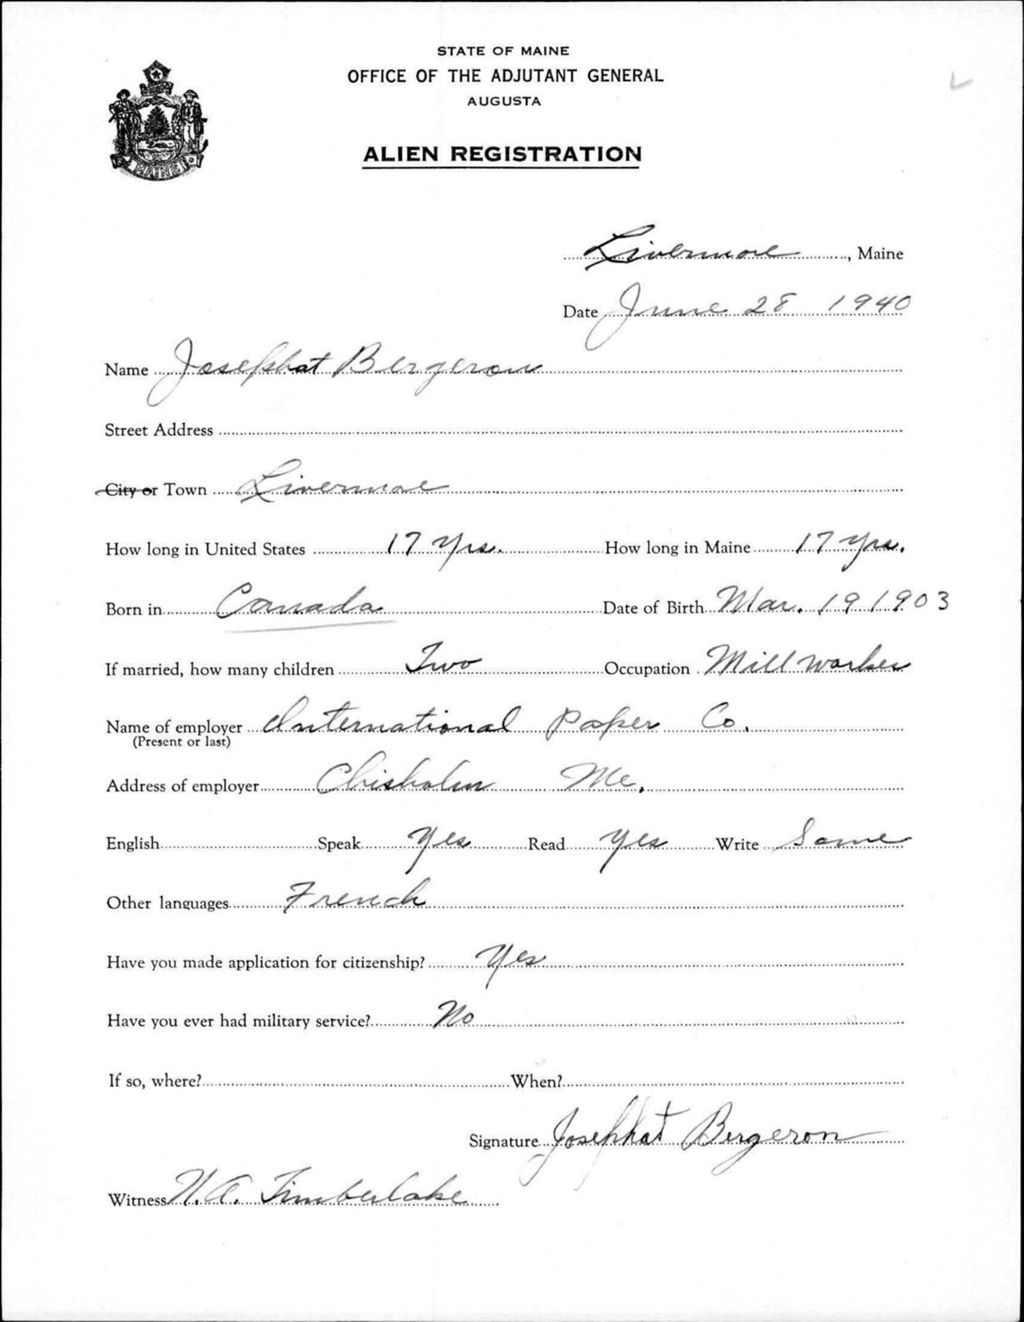 STATE OF MAINE
OFFICE OF THE ADJUTANT GENERAL
AUGUSTA
ALIEN REGISTRATION
MAINE
Livermore, Maine
Date June 28 1940
Name Josephat Bergeron
Street Address
City or Town Livermore
How long in United States 17 Yrs. How long in Maine 17 Yrs.
Born in Canada Date of Birth Mar. 19 1903
If married, how many children Two Occupation Mill worker
Name of employer International Paper Co.
(Present or last)
Address of employer Chisholm Me.
English Speak Yes Read Yes Write Some
Other languages French
Have you made application for citizenship? Yes
Have you ever had military service? No
If so, where? When?
Signature Josephat Bergeron
Witness N. A. Timberlake